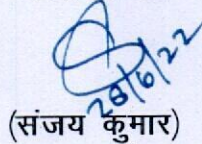 28/6/22
(संजय कुमार)